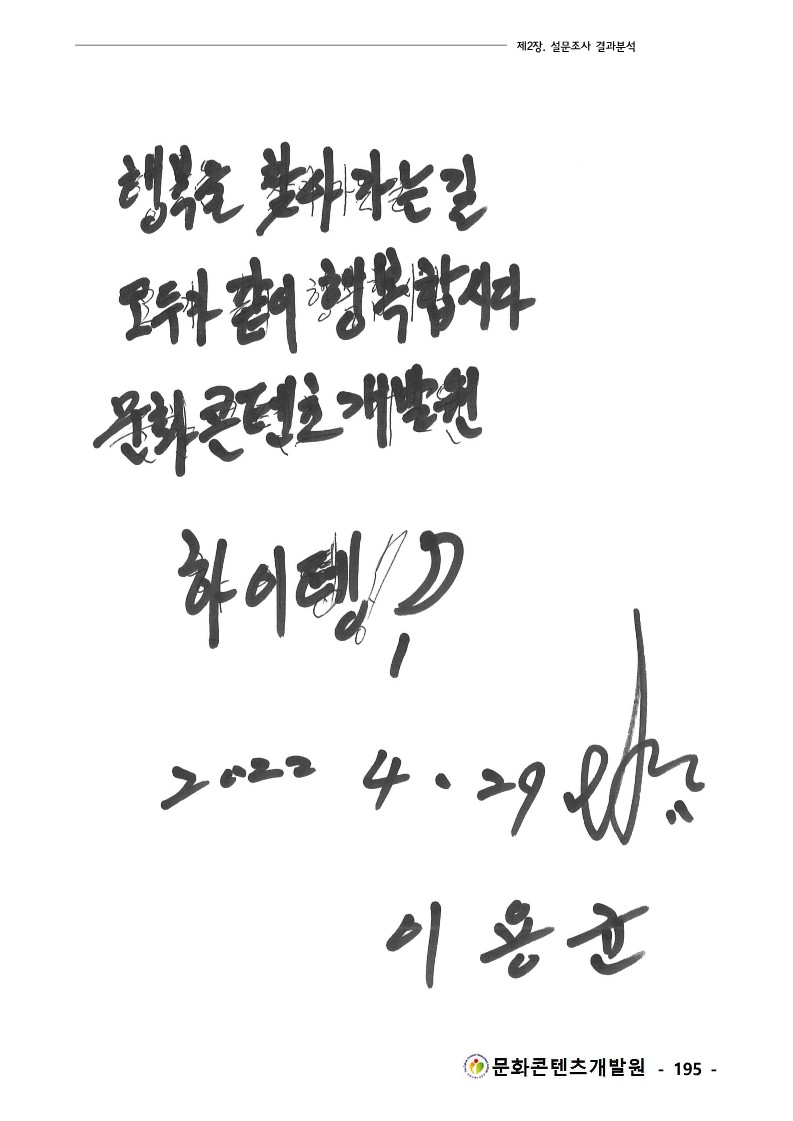 제2장. 설문조사 결과분석
행복을 찾아가는길
모두가 같이 행복합시다
문화콘텐츠개발원
하이텡!
2022 4. 29
이용균
문화콘텐츠개발원 - 195 -